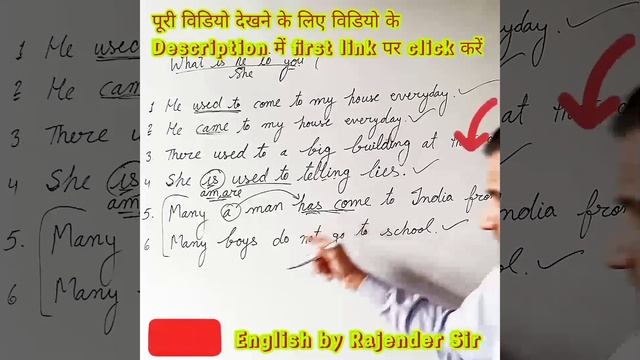 पूरी विडियो देखने के लिए विडियो के
Description में first link पर click करें
What is he to you ?
She
1 He used to come to my house everyday.
2 He came to my house everyday.
3. There used to a big building at
4 She is used to telling lies.
am, are
5. Many a man has come to India from
6 Many boys do not go to school.
English by Rajender Sir